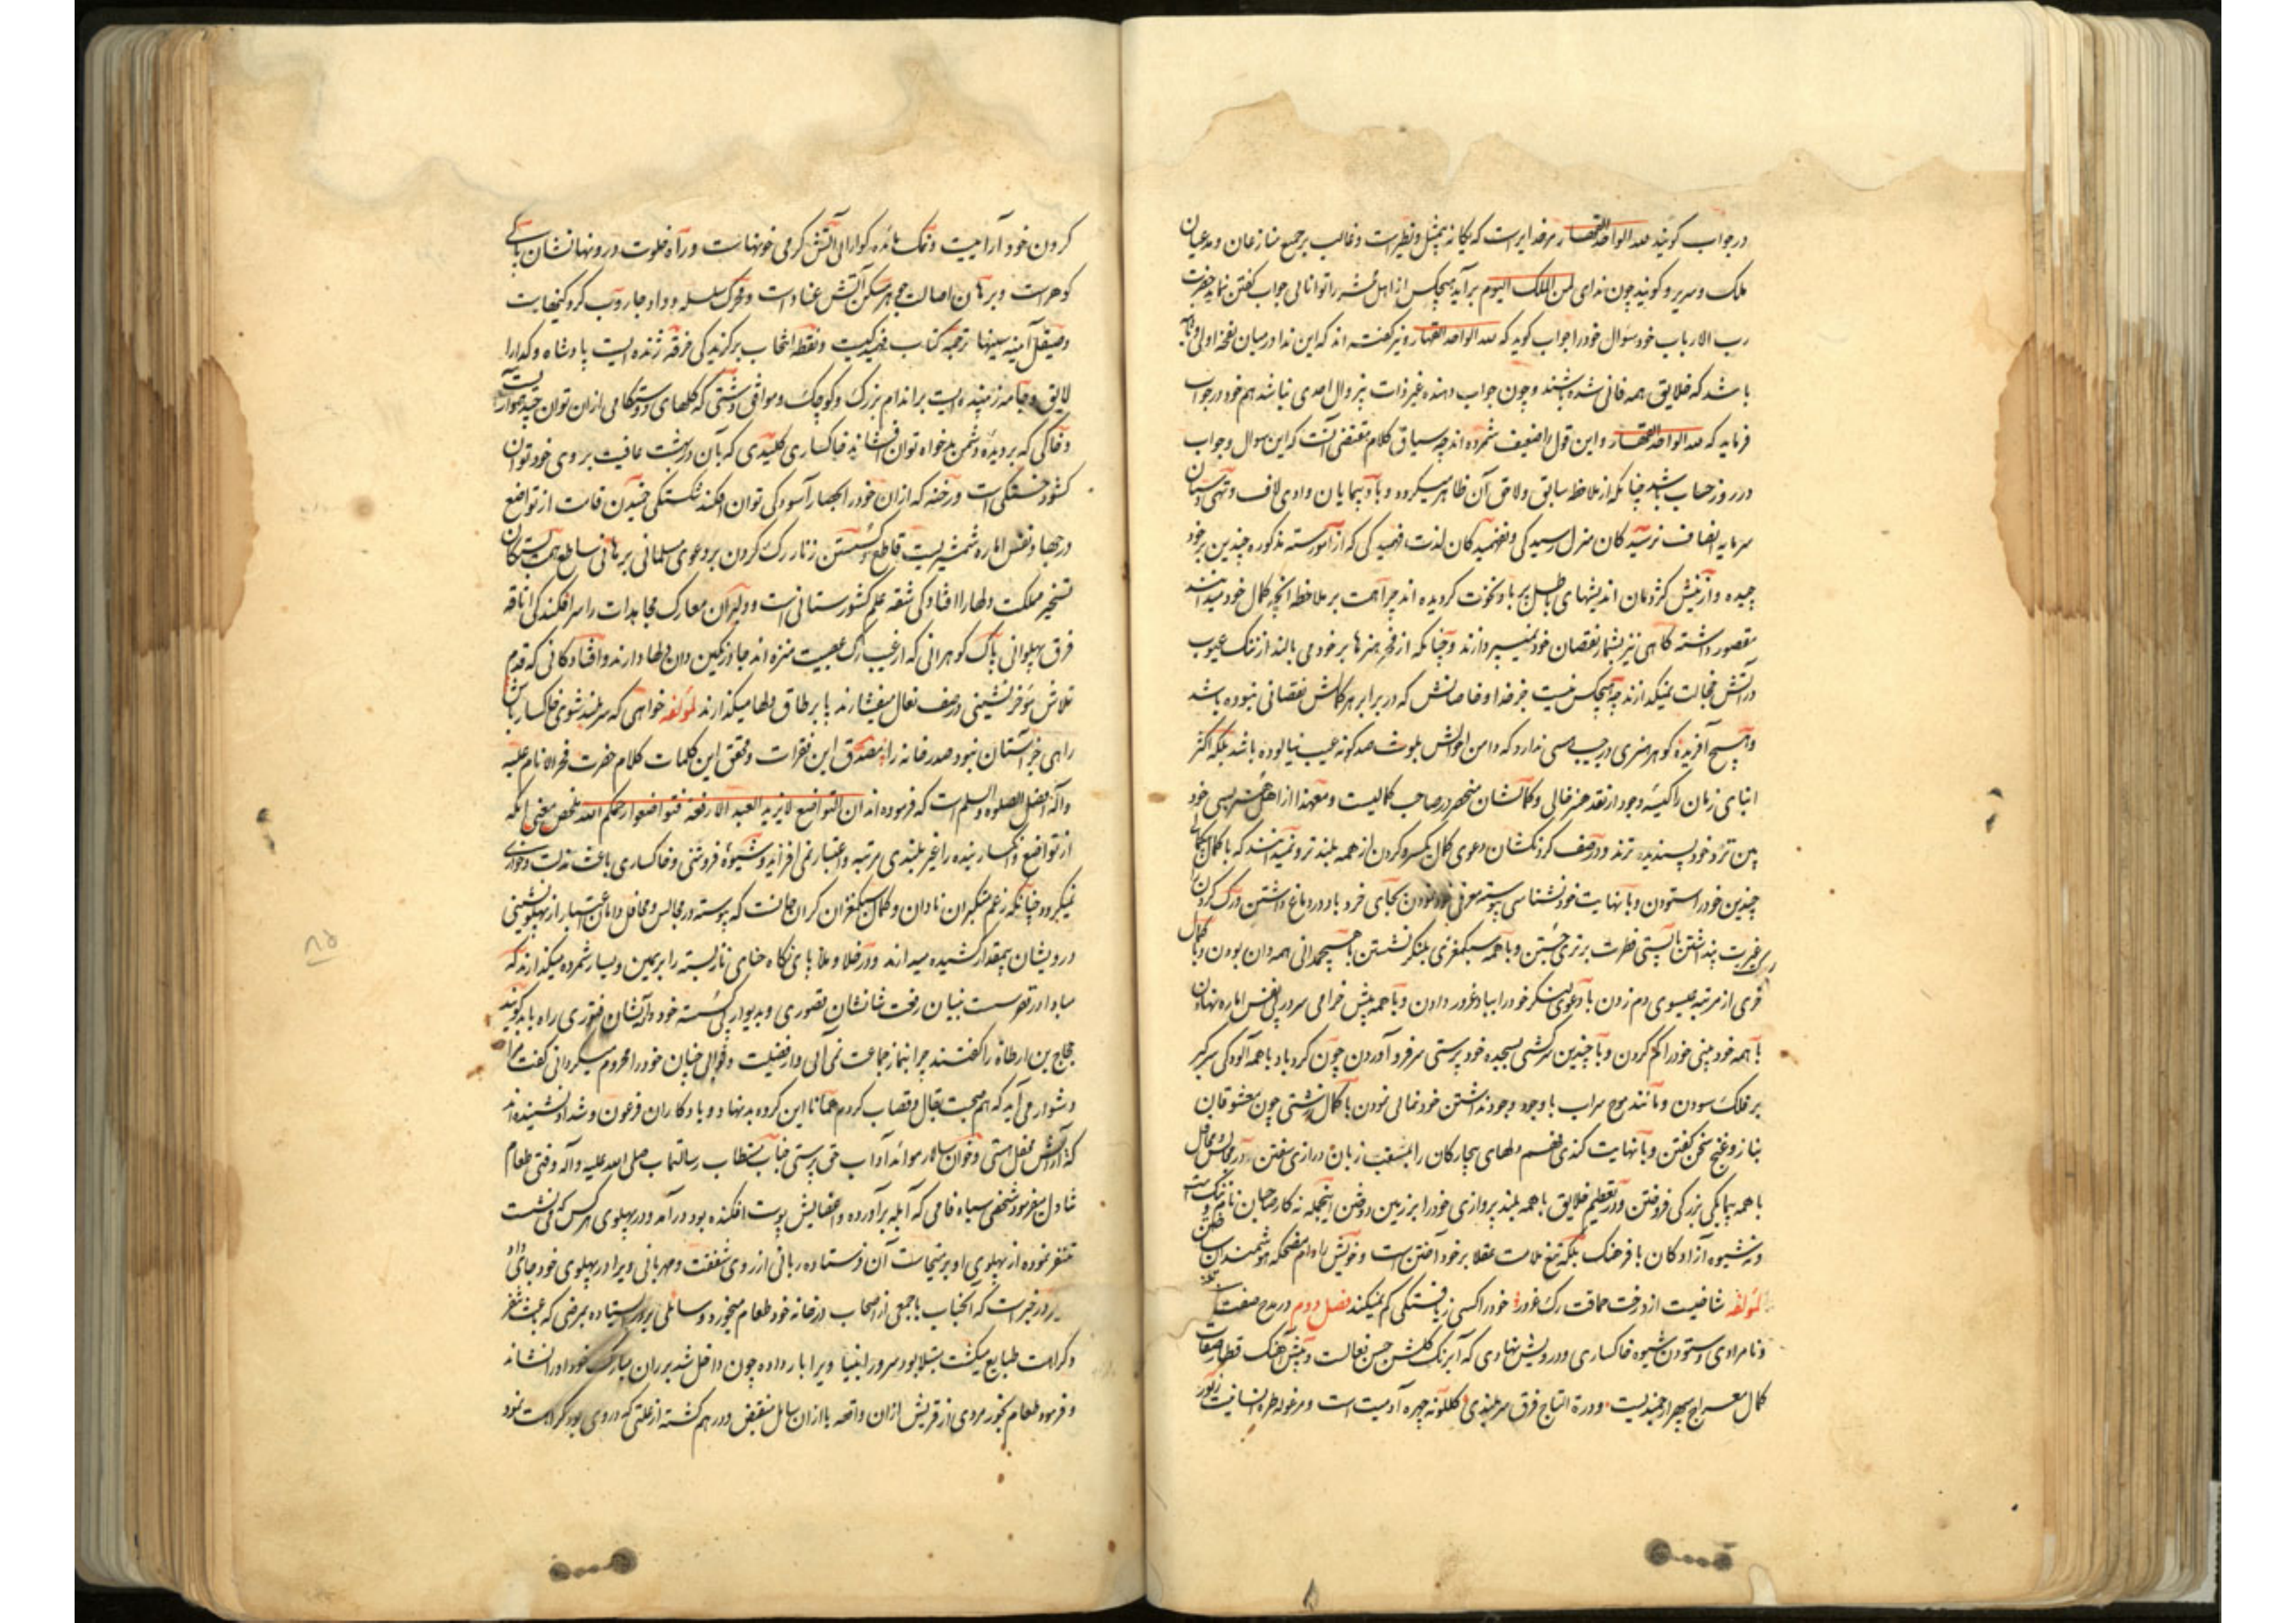 در جواب گویند لله الواحد القهار مر خدایراست که یگانه بیمثل و نظیر است و غالب بر جمیع منازعان و مدعیان
ملک و سریر و گویند چون ندای لمن الملک الیوم برآید هیچکس از اهل محشر را توانائی جواب گفتن نماند حضرت
رب الارباب خود سؤال خود را جواب گوید که لله الواحد القهار و نیز گفته اند که این ندا در میان نفخه اولی و ثانیه
باشد که خلایق همه فانی شده باشند و چون جواب دهنده غیر ذات بیزوال احدی نباشد هم خود در جواب
فرماید که لله الواحد القهار و این قول را ضعیف شمرده اند چه سیاق کلام مقتضی آنست که این سوال و جواب
در روز حساب باشد چنانکه از ملاحظه سابق و لاحق آن ظاهر میگردد و بادپیمایان وادی لاف و تهی دستان
سرمایه انصاف نرسیدگان منزل رسیدگی و نفهمیدگان لذت فهمیدگی که از امور سته مذکوره چندین بر خود
چیده و از منیش کژدمان اندیشهای باطل پر باد نخوت گردیده اند چرا همت بر ملاحظه آنچه کمال خود میدانند
مقصور داشته گاهی نیز بشمار نقصان خود نمیپردازند و چنانکه از فخر هنرها بر خود می بالند از ننگ عیوب
در آتش خجالت نمیگدازند چه هیچکس نیست جز خدا و خاصانش که در برابر هر کمالش نقصانی نبوده باشد
و هیچ آفریده گوهر هنری در جیب هستی ندارد که دامن احوالش بلوث صدگونه عیب نیالوده باشد بلکه اکثر
ابنای زمان را کیسه وجود از نقد هنر خالی و کمالشان منحصر در صاحب کمالیست و معهذا از اهل هنر بسی خود
بین تر و خود پسندیده ترند و در صف گردنکشان دعوی کمال یکسر و گردن از همه بلند تر و نمیدانند که با کمال
چندین خود را ستودن و با نهایت خود نشناسی پیوسته معرف خود بودن بجای خرد باد در دماغ داشتن و رگ گردن
رگ غیرت پنداشتن با پستی فطرت برتری جستن و با همه سبکمغزی بلنگر نشستن با هیچمدانی همه دان بودن و با کمال
خری از مرتبه عیسوی دم زدن با دعوی لشکر خود را بباد غرور دادن و با همه پیش خرامی سر در پی نفس اماره نهادن
با همه خود بینی خود را گم کردن و با چندین سرکشی بسجده خود پرستی سر فرو آوردن چون گردباد با همه آلودگی سر کبر
بر فلک سودن و مانند موج سراب با وجود وجود نداشتن خود نمائی نمودن با کمال زشتی چون معشوقان
بناز و غنج سخن گفتن و با نهایت کندی فهم دلهای بیچارگان را بمثقب زبان درازی سفتن در مجالس و محافل
با همه بیمایگی بزرگی فروختن و در تعظیم خلایق با همه بلند پروازی خود را بر زمین دوختن اینجمله نه کار صاحبان نام و ننگ است
و نه شیوه آزادگان با فرهنگ بلکه تیغ ملامت عقلا بر خود آختن است و خویش را دام مضحکه هوشمندان ساختن
لمؤلفه شاخیست از درخت حماقت رگ غرور خود را کسی ز یافتگی کم نمیکند فصل دوم در مدح صفت
و نامرادی و ستودن شیوه خاکساری و درویش نهادی که آبرنگ گلشن حسن فعالت و پیش آهنگ قطار صفات
کمال معراج سپهر ارجمندیست و درة التاج فرق سربلندی گلگونه چهره آدمیت است و مرغوله طره انسانیت زیور
گردن خود آراییست و نمک مائده گوارائی آتش گرمی خونهاست و راه خلوت درونها نشان پاکی
گوهر است و برهان اصالت جوهر مسکن آتش عناد است و محرک سلسله وداد جاروب گرد کینهاست
و صیقل آئینه سینها ترجمه کتاب فهمیدگیست و نقطه انتخاب برگزیدگی خرقه ژنده ایست پادشاه و گدا را
لایق و جامه زیبنده ایست بر اندام بزرگ و کوچک موافق دشتی که گلهای دوستکامی ازان توان چید هموار
و خاکی که بر دیده دشمن بدخواه توان افشاند خاکساری کلیدی که بآن در بهشت عافیت بروی خود توان
گشود خستگی است و رخنه که ازان خود را بحصار آسودگی توان افکند شکستگی خمیدن قامت از تواضع
در جهاد نفس اماره شمشیریست قاطع و گسستن زنار رگ گردن بر دعوی مسلمانی برهانی ساطع همت بستگان
تسخیر مملکت دلها را افتادگی شقه علم کشورستانی است و دلیران معارک مجاهدات را سرافکندگی اتاقه
فرق پهلوانی پاک گوهرانی که از عیب رگ عصبیت منزه اند جا در نگین دان دلها دارند و افتادگانی که قدم
تلاش مؤخر نشینی در صف نعال میفشارند پا بر طاق دلها میگذارند لمؤلفه خواهی که سربلند شوی خاکسار باش
راهی جز آستان نبود صدر خانه را مصدق این فقرات و محقق این کلمات کلام حضرت فخر الانام علیه
و آله افضل الصلوة و السلم است که فرموده اند ان التواضع لا یزید العبد الا رفعة فتواضعوا رحمکم الله ملخص معنی آنکه
از تواضع و انکسار بنده را غیر بلندی مرتبه و اعتبار نمی افزاید و شیوه فروتنی و خاکساری باعث مذلت و خواری
نمیگردد چنانکه زعم متکبران نادان و گمان سبکمغزان گران جانست که پیوسته در مجالس و محافل دامان اعتبار از پهلونشینی
درویشان بیمقدار کشیده میدارند و در خلا و ملا پای نگاه حنای ناز بسته را بر یمین و یسار شمرده میگذارند که
مبادا در تقویست بنیان رفعت شانشان قصوری و بدیوار پی گسسته خود رائیشان فتوری راه یابد گویند
حجاج بن ارطاة را گفتند چرا بنماز جماعت نمی آئی و از فضیلت و ثوابی چنان خود را محروم میگردانی گفت مرا
دشوار می آید که هم صحبت بقال و قصاب گردم همانا این گروه بدنهاد و یادگاران فرعون و شداد نشنیده اند
که آرایش محفل هستی و خوان سالار موائد آداب حق پرستی جناب مستطاب رسالتماب صلی الله علیه و آله وقتی طعام
تناول میفرمود شخصی سیاه فامی که آبله برآورده و اعضایش پوست افکنده بود درآمد و در پهلوی هر کس که می نشست
متنفر نموده از پهلوی او بر میخاست آن فرستاده ربانی از روی شفقت و مهربانی ویرا در پهلوی خود جای داد
در خبر است که آنجناب با جمعی از اصحاب در خانه خود طعام میخورد و سائلی بر در ایستاده بمرضی که باعث تنفر
و کراهت طبایع میگشت مبتلا بود سرور انبیا ویرا بار داده چون داخل شد بر ران مبارک خود او را نشاند
و فرمود طعام بخور مردی از قریش ازان واقعه یا ازان سایل منقبض و درهم گشته از علتی که در وی بود کراهت نمود
۸۵